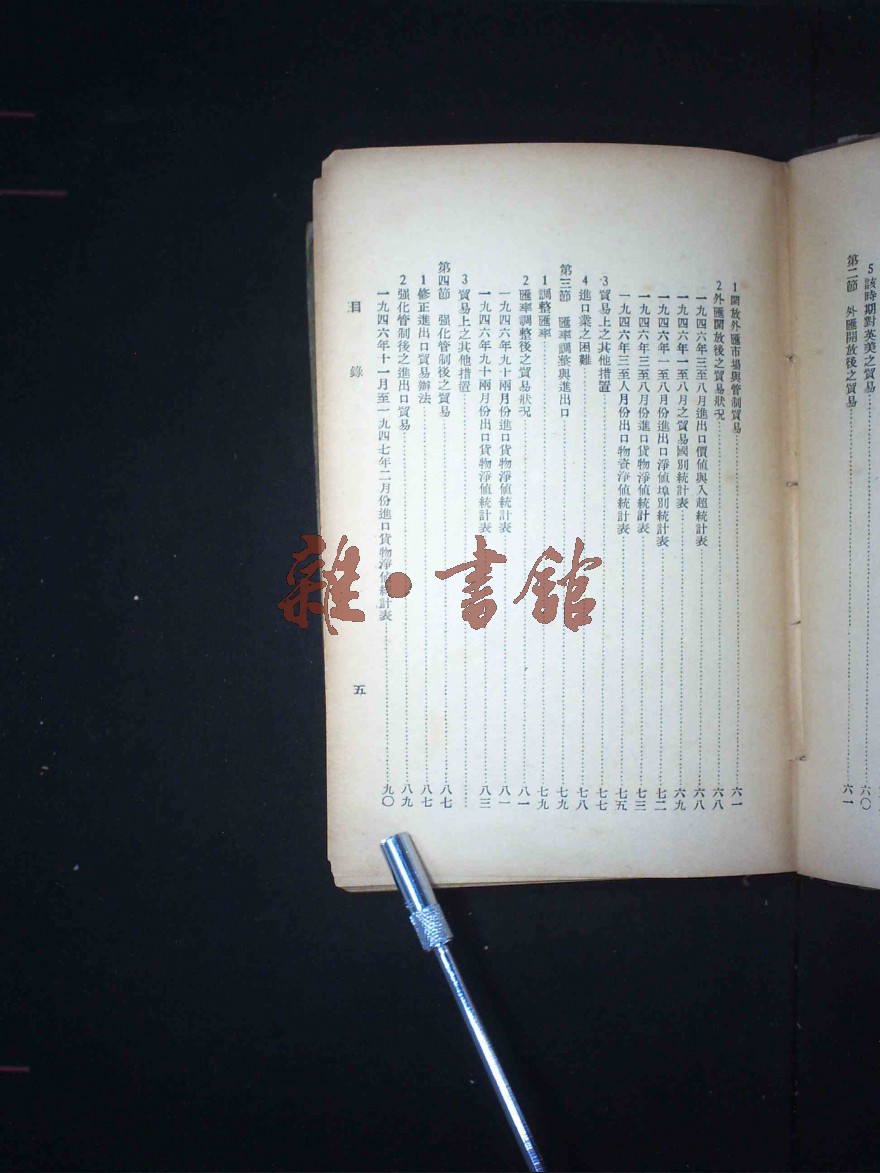 5 該時期對英美之貿易……六〇
第二節 外匯開放後之貿易……六一
1 開放外匯市場與管制貿易……六一
2 外匯開放後之貿易狀况……六八
一九四六年三至八月進出口價値與入超統計表……六八
一九四六年一至八月之貿易國別統計表……六九
一九四六年一至八月份進出口淨値埠別統計表……七二
一九四六年三至八月份進口貨物淨値統計表……七三
一九四六年三至八月份出口物資淨値統計表……七五
3 貿易上之其他措置……七七
4 進口業之困難……七八
第三節 匯率調整與進出口……七九
1 調整匯率……七九
2 匯率調整後之貿易狀况……八一
一九四六年九十兩月份進口貨物淨値統計表……八一
一九四六年九十兩月份出口貨物淨値統計表……八三
3 貿易上之其他措置……
第四節 强化管制後之貿易……八七
1 修正進出口貿易辦法……八七
2 强化管制後之進出口貿易……八九
一九四六年十一月至一九四七年二月份進口貨物淨値統計表……九〇
目錄 五
雜·書館